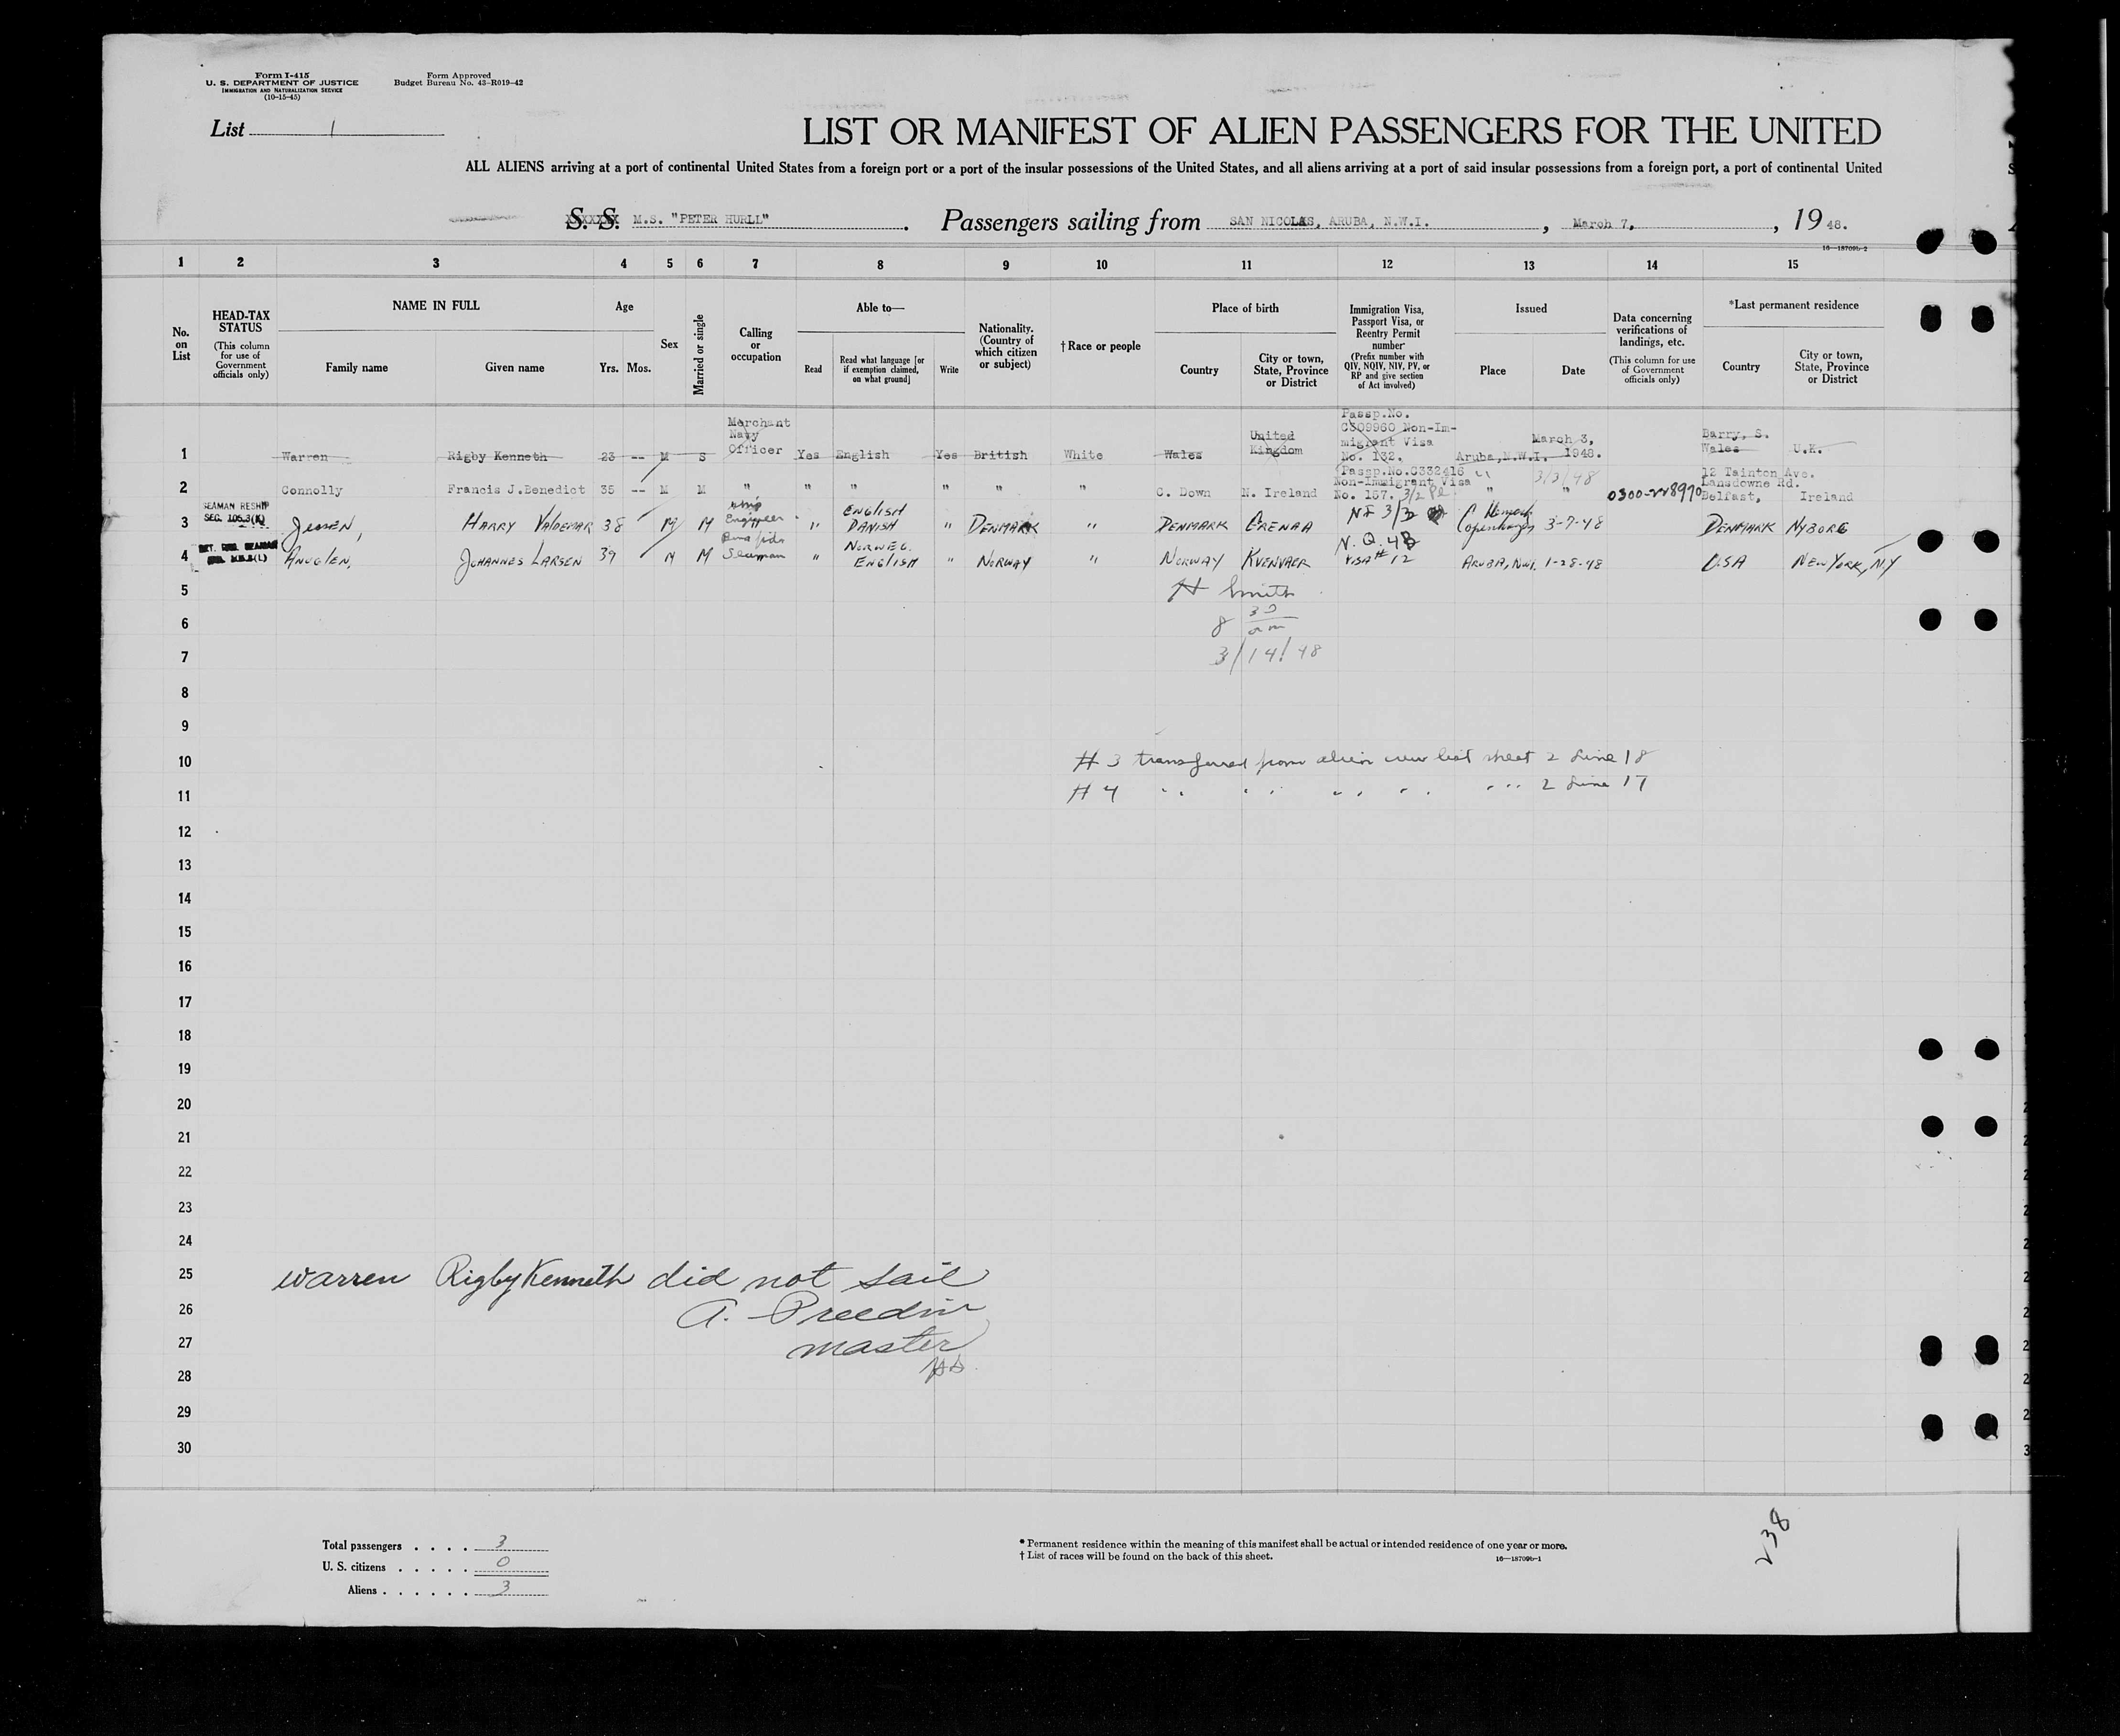 Form I-415
U. S. DEPARTMENT OF JUSTICE
IMMIGRATION AND NATURALIZATION SERVICE
(10-15-45)
Form Approved
Budget Bureau No. 43-R019-42
List 1
LIST OR MANIFEST OF ALIEN PASSENGERS FOR THE UNITED
ALL ALIENS arriving at a port of continental United States from a foreign port or a port of the insular possessions of the United States, and all aliens arriving at a port of said insular possessions from a foreign port, a port of continental United
S. S. M.S. "PETER HURLL" . Passengers sailing from SAN NICOLAS, ARUBA, N.W.I. , March 7, , 19 48.
16—18709b-2
1 2 3 4 5 6 7 8 9 10 11 12 13 14 15
No. on List
HEAD-TAX STATUS
(This column for use of Government officials only)
NAME IN FULL
Family name Given name
Age
Yrs. Mos.
Sex
Married or single
Calling or occupation
Able to—
Read
Read what language [or if exemption claimed, on what ground]
Write
Nationality. (Country of which citizen or subject)
† Race or people
Place of birth
Country
City or town, State, Province or District
Immigration Visa, Passport Visa, or Reentry Permit number
(Prefix number with QIV, NQIV, NIV, PV, or RP and give section of Act involved)
Issued
Place Date
Data concerning verifications of landings, etc.
(This column for use of Government officials only)
*Last permanent residence
Country
City or town, State, Province or District
1 Warren Rigby Kenneth 23 -- M S Merchant Navy Officer Yes English Yes British White Wales United Kingdom Passp.No. C309960 Non-Immigrant Visa No. 132. Aruba,N.W.I. March 3, 1948. Barry, S. Wales U.K.
2 Connolly Francis J.Benedict 35 -- M M " " " " " " C. Down N. Ireland Passp.No.C332416 Non-Immigrant Visa No. 157. 3/2 " " 3/3/48 0300-228970 12 Tainton Ave. Lansdowne Rd. Belfast, Ireland
SEAMAN RESHIP
SEC. 105.3(K)
3 Jensen, HARRY VALDEMAR 38 M M Ship Engineer " ENGLISH DANISH " DENMARK " DENMARK GRENAA NI 3/3 Denmark Copenhagen 3-7-48 DENMARK NYBORG
4 ANGLEN, JOHANNES LARSEN 39 M M Bona fide Seaman " NORWEG. ENGLISH " NORWAY " NORWAY KVENVAER N.Q. 4B VISA # 12 ARUBA, NWI. 1-28-48 USA NEW YORK, N.Y
5 H Smith
6 8 30 am
7 3/14/48
8
9
10 # 3 transferred from alien crew list sheet 2 Line 18
11 # 4 " " " " " 2 Line 17
12
13
14
15
16
17
18
19
20
21
22
23
24
25 Warren Rigby Kenneth did not sail
26 A. Preedin
27 master
28
29
30
Total passengers . . . . 3
U. S. citizens . . . . . 0
Aliens . . . . . . 3
* Permanent residence within the meaning of this manifest shall be actual or intended residence of one year or more.
† List of races will be found on the back of this sheet.
16—18709b-1
238